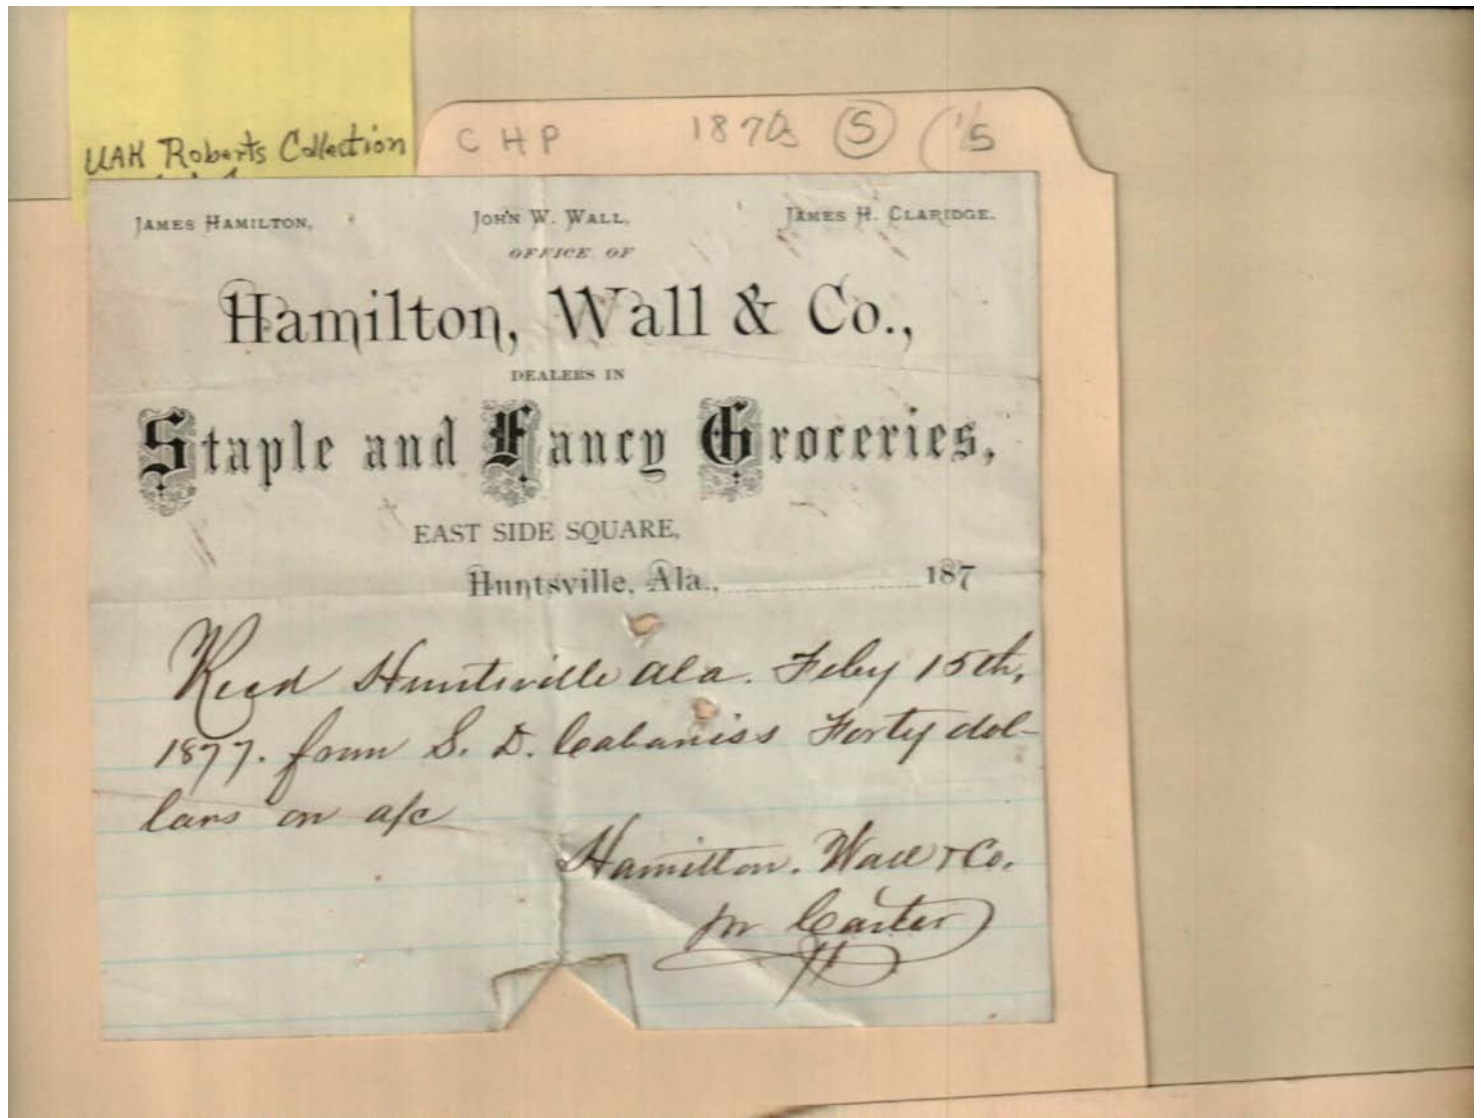 UAH Roberts Collection
C H P 1870s S ('5
JAMES HAMILTON, JOHN W. WALL, JAMES H. CLARIDGE.
OFFICE OF
Hamilton, Wall & Co.,
DEALERS IN
Staple and Fancy Groceries,
EAST SIDE SQUARE,
Huntsville, Ala., 187
Recd Huntsville Ala. Feby 15th,
1877. from S. D. Cabaniss Forty dol-
lars on a/c
Hamilton. Wall & Co.
pr Carter